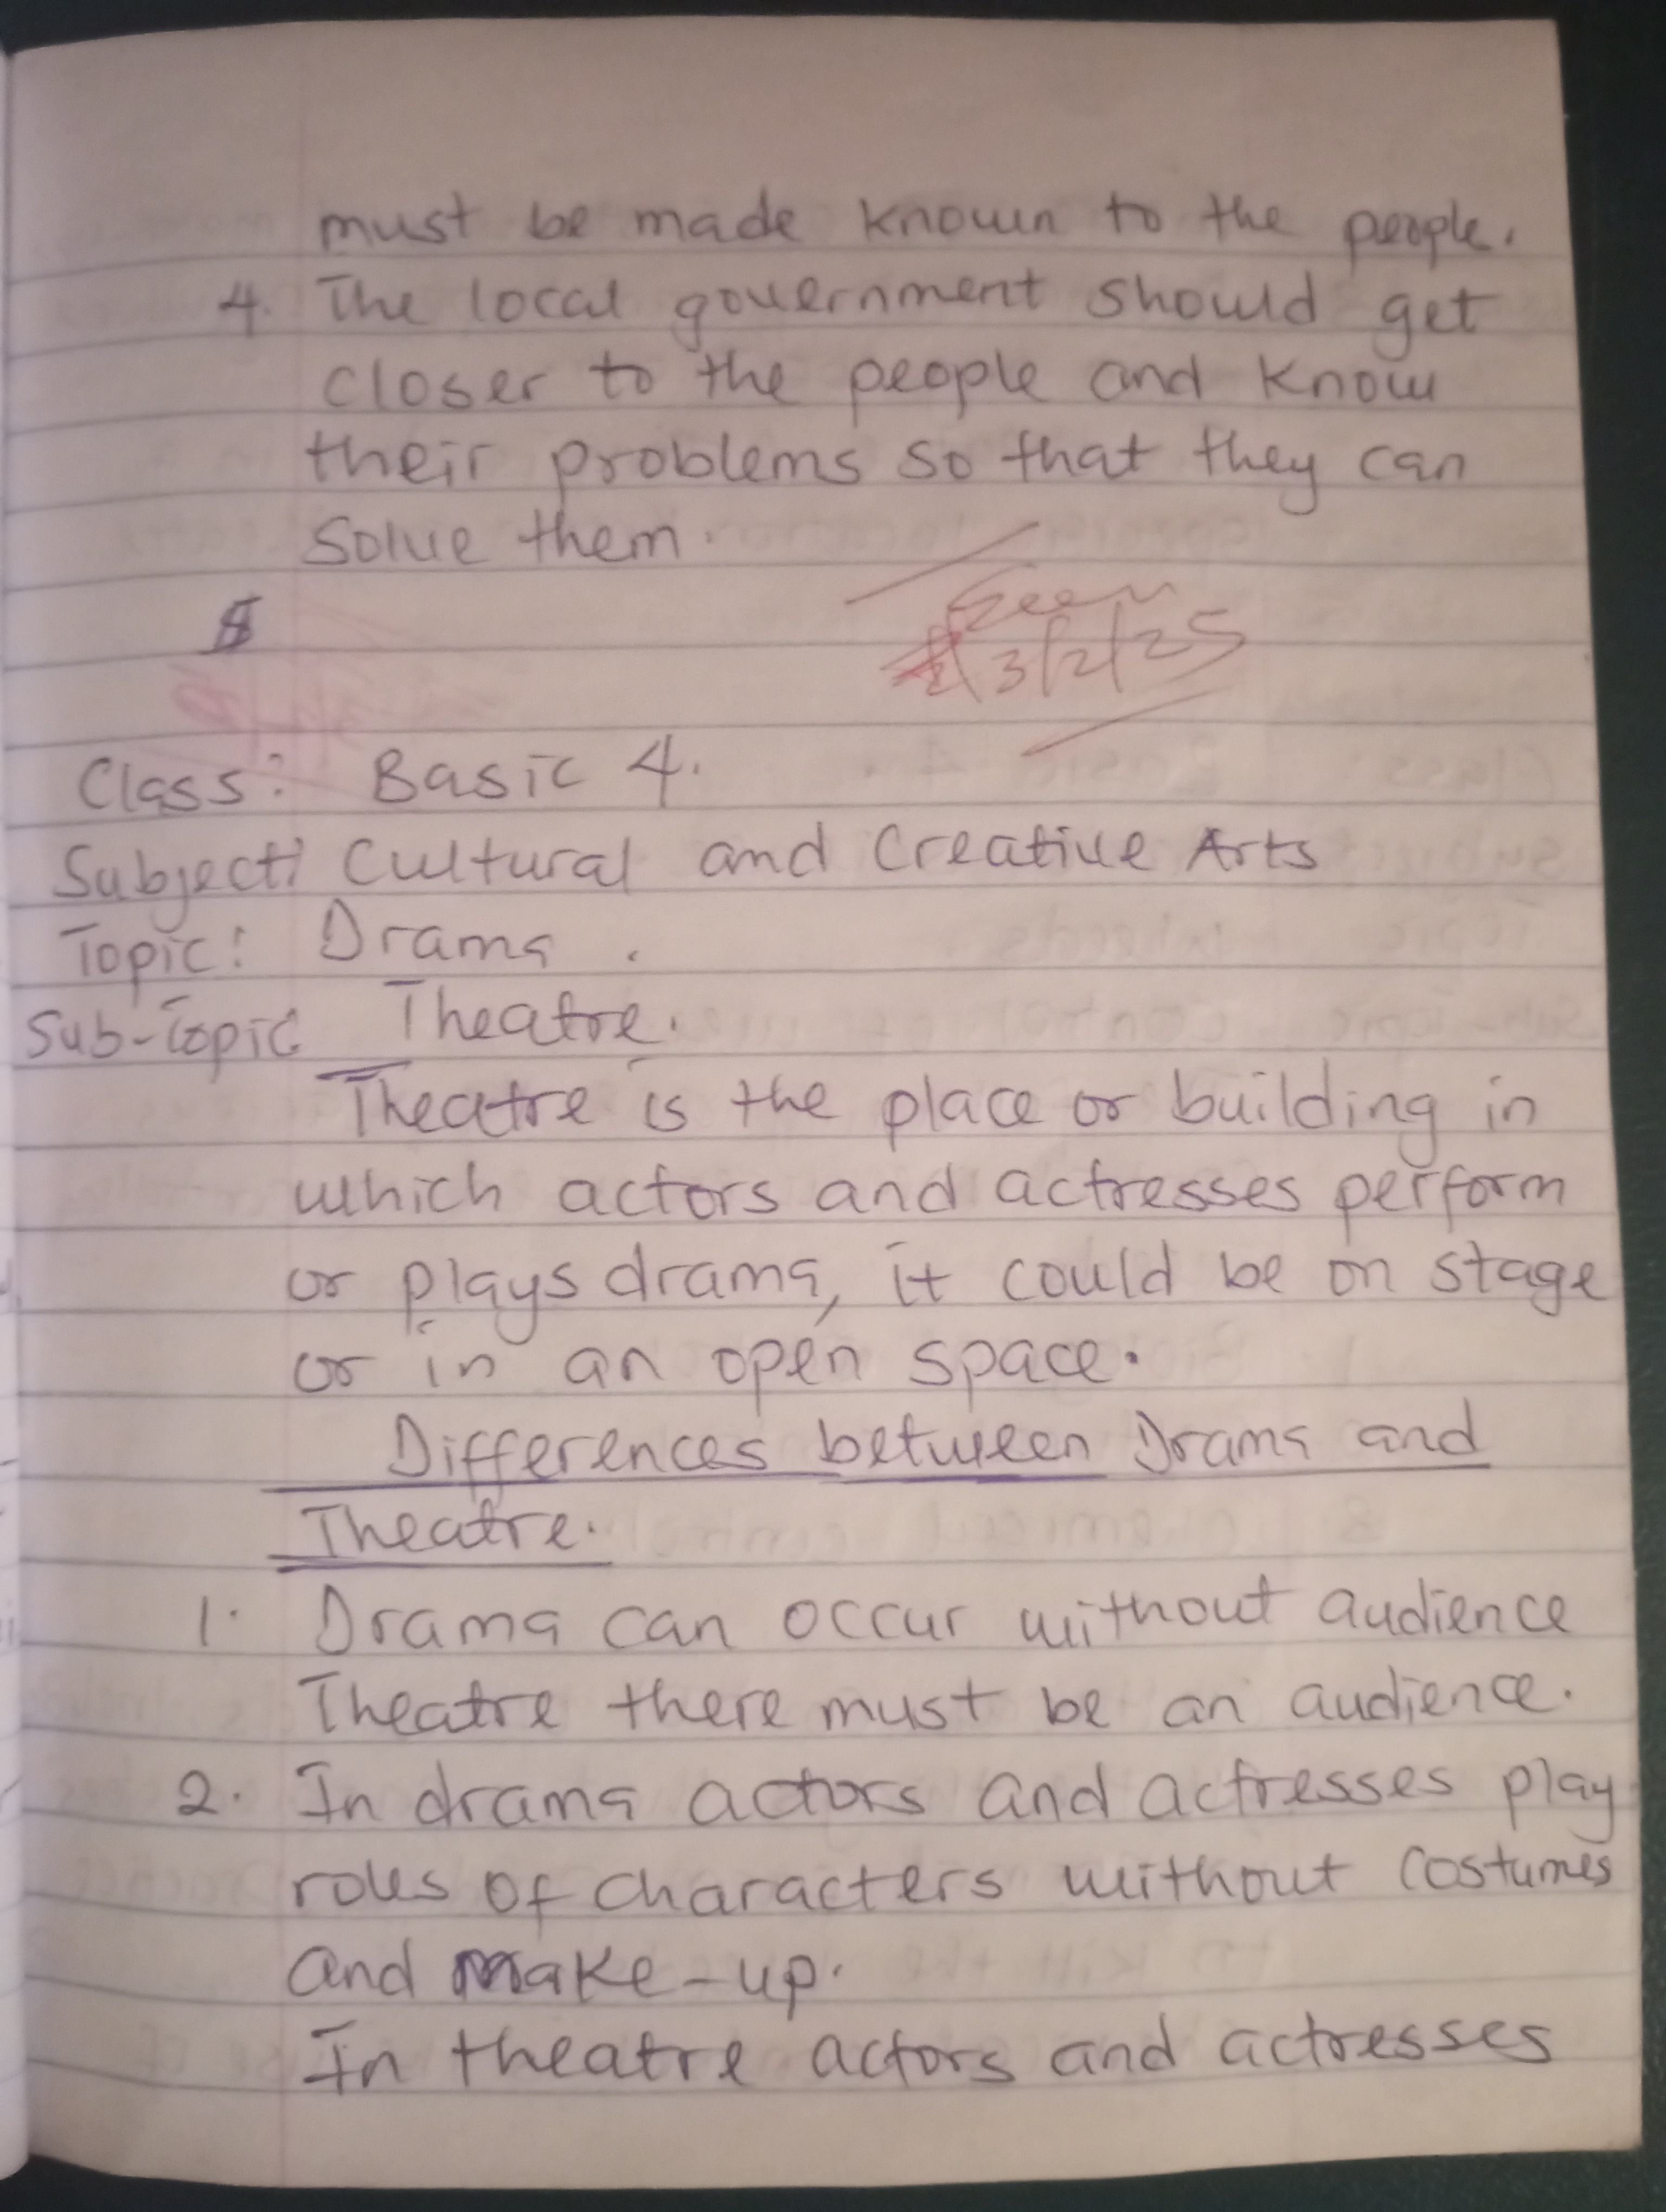 must be made known to the people.
4. The local government should get
closer to the people and know
their problems so that they can
solve them.
Seen
3/2/25
Class: Basic 4.
Subject: Cultural and Creative Arts
Topic: Drama.
Sub-Topic Theatre.
Theatre is the place or building in
which actors and actresses perform
or plays drama, it could be on stage
or in an open space.
Differences between Drama and
Theatre.
1. Drama can occur without audience
Theatre there must be an audience.
2. In drama actors and actresses play
roles of characters without costumes
and make-up.
In theatre actors and actresses